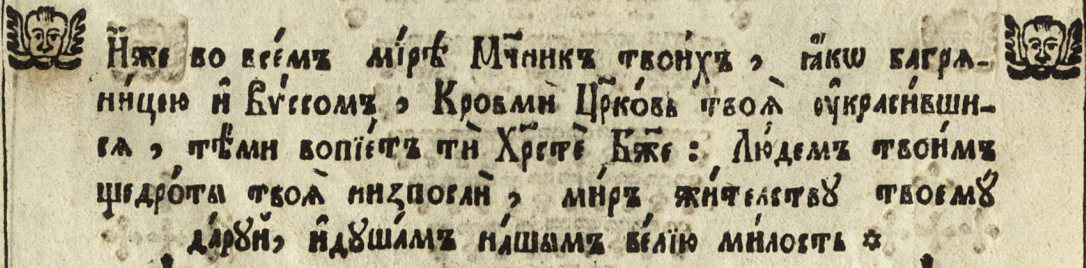 И҆́же во все́мъ мі́рѣ Мч҃никъ твои́хъ, ꙗ҆́кѡ багрѧ-
ни́цею и҆ Вѵ́ссомъ, Кровмѝ Цр҃ко́вь твоѧ̀ оу҆краси́вши-
сѧ, тѣ́ми вопїе́тъ тѝ Хрⷭ҇тѐ Бж҃е: Лю́демъ твои́мъ
щедро́ты твоѧ̀ низпослѝ, ми́ръ жи́телству твоемꙋ̀
да́рꙋй, и҆дꙋша́мъ на́шымъ ве́лїю ми́лость ✡